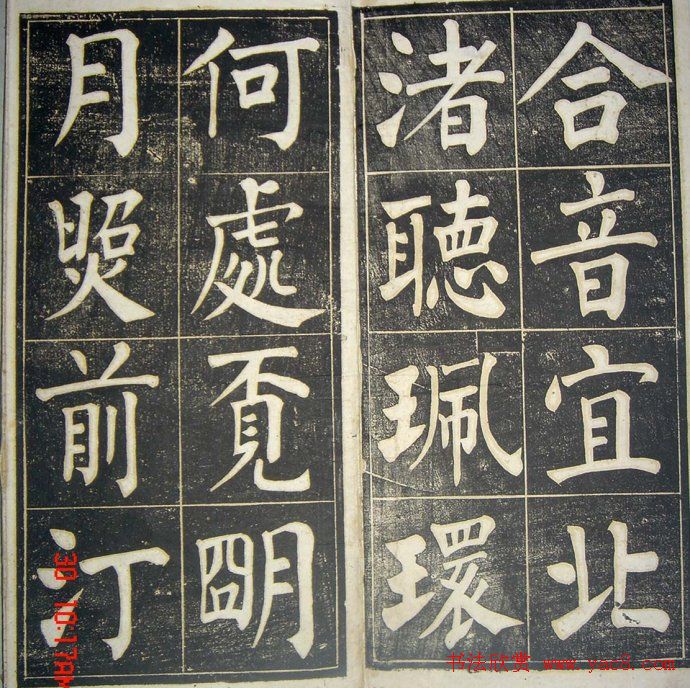 合音宜北
渚聽珮環
何處覔朙
月照前汀
30 10:17AM
书法欣赏 www.yac8.com